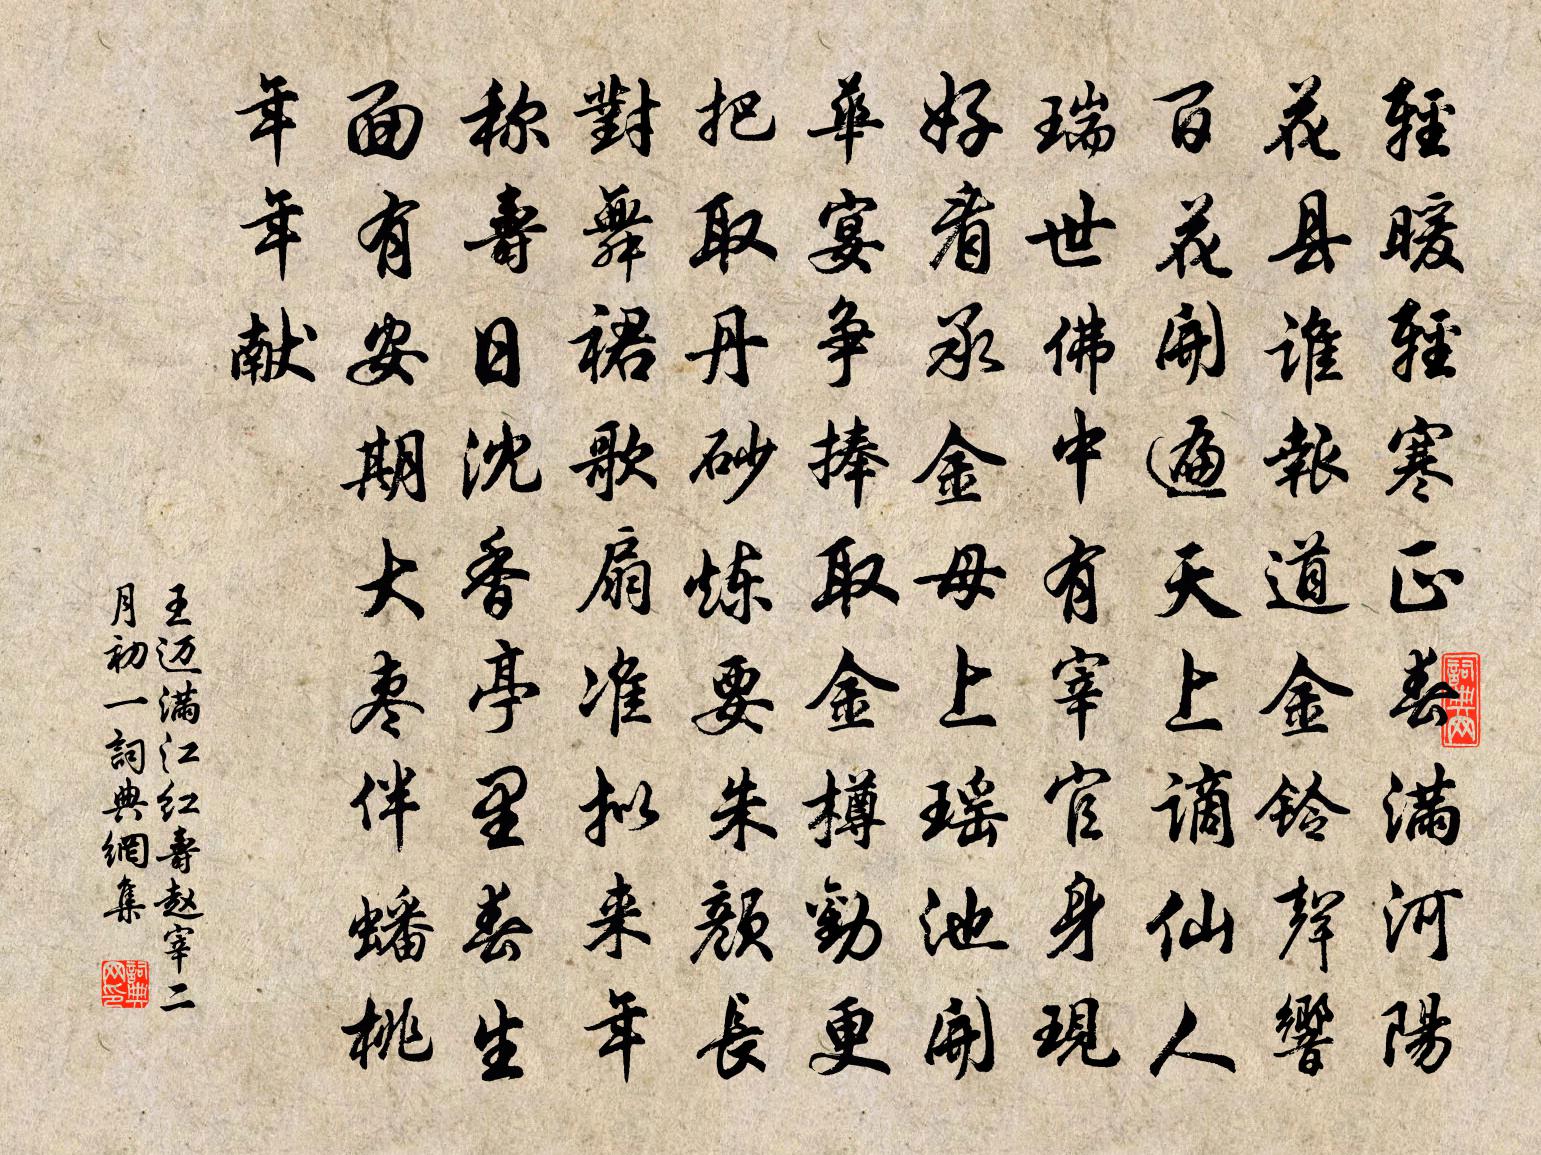 輕暖輕寒正春滿河陽
花县誰報道金鈴聲響
百花開遍天上謫仙人
瑞世佛中有宰官身現
好看承金母上瑶池開
華宴争捧取金樽勸更
把取丹砂炼要朱顏長
對舞裙歌扇准拟来年
称壽日沈香亭里春生
面有安期大枣伴蟠桃
年年献
王迈满江红壽赵宰二
月初一詞典網集
詞典网
詞典网印